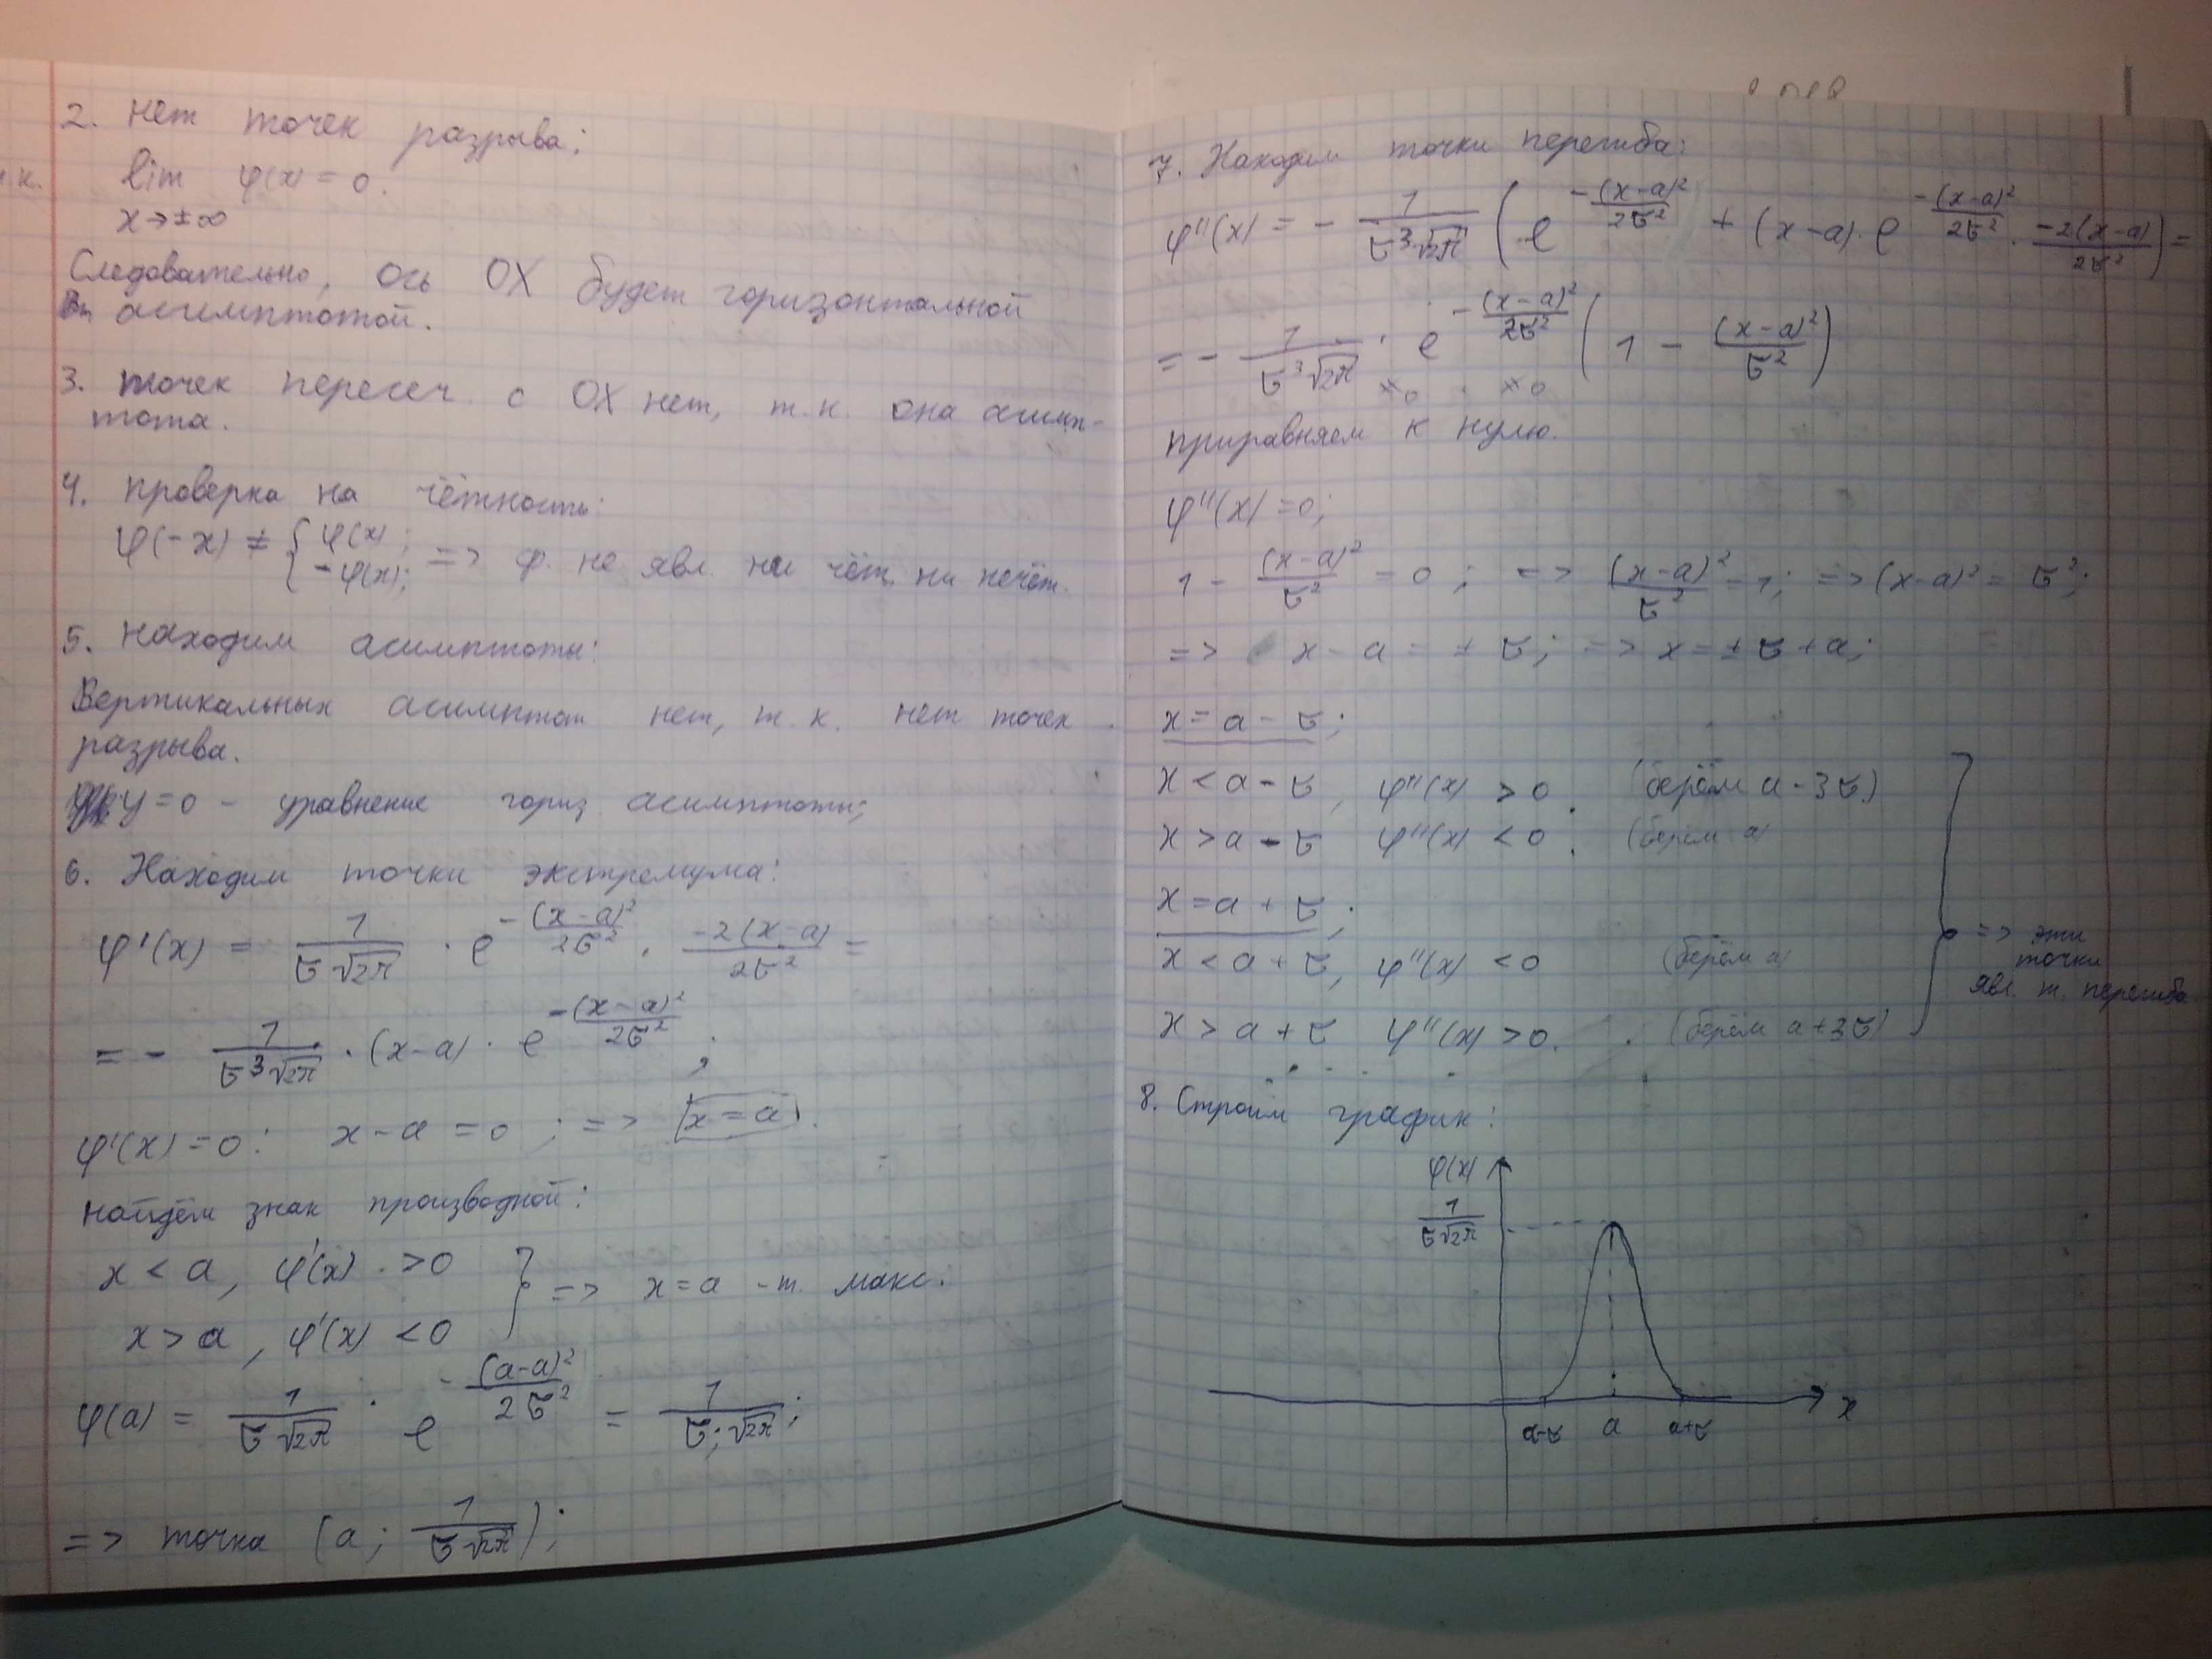 2. нет точек разрыва;
т.к. lim φ(x) = 0.
x→±∞
Следовательно, ось OX будет горизонтальной
асимптотой.
3. точек пересеч. с OX нет, т.к. она асимп-
тота.
4. проверка на чётность:
φ(-x) ≠ { φ(x); -φ(x); => ф. не явл. ни чёт. ни нечёт.
5. находим асимптоты:
Вертикальных асимптот нет, т.к. нет точек
разрыва.
y=0 - уравнение гориз асимптоты;
6. Находим точки экстремума:
φ'(x) = 1/(σ√2π) · e^(-(x-a)²/2σ²) · -2(x-a)/2σ² =
= - 1/(σ³√2π) · (x-a) · e^(-(x-a)²/2σ²);
φ'(x)=0: x-a=0; => x=a.
найдём знак производной:
x < a, φ'(x) > 0
x > a, φ'(x) < 0 } => x=a - т. макс.
φ(a) = 1/(σ√2π) · e^(-(a-a)²/2σ²) = 1/(σ·√2π);
=> точка (a; 1/(σ√2π));
7. Находим точки перегиба:
φ''(x) = - 1/(σ³√2π) (e^(-(x-a)²/2σ²) + (x-a)·e^(-(x-a)²/2σ²) · -2(x-a)/2σ²) =
= - 1/(σ³√2π) · e^(-(x-a)²/2σ²) (1 - (x-a)²/σ²)
≠0 ≠0
приравняем к нулю.
φ''(x)=0;
1 - (x-a)²/σ² = 0; => (x-a)²/σ² = 1; => (x-a)² = σ²;
=> x-a = ±σ; => x=±σ+a;
x=a-σ;
x<a-σ, φ''(x) > 0. (берём a-3σ)
x>a-σ φ''(x) < 0. (берём a)
x=a+σ;
x<a+σ, φ''(x) < 0 (берём a)
=> эти
точки
явл. т. перегиба
x>a+σ φ''(x) > 0. (берём a+3σ)
8. Строим график:
φ(x)
1/(σ√2π)
a-σ a a+σ x